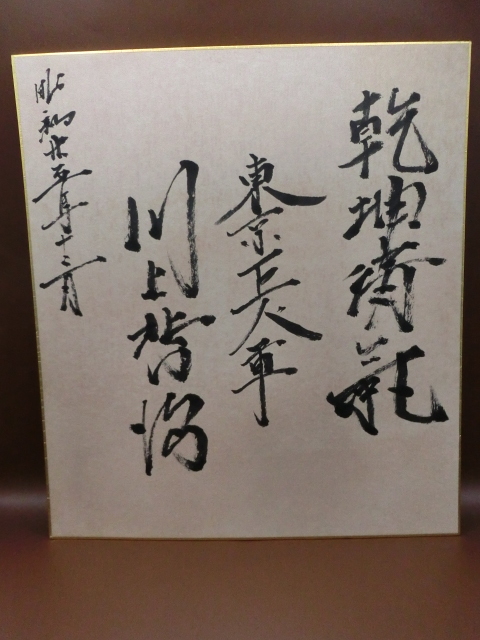 乾坤清氣
東京巨人軍
川上哲治
昭和廿五年十二月